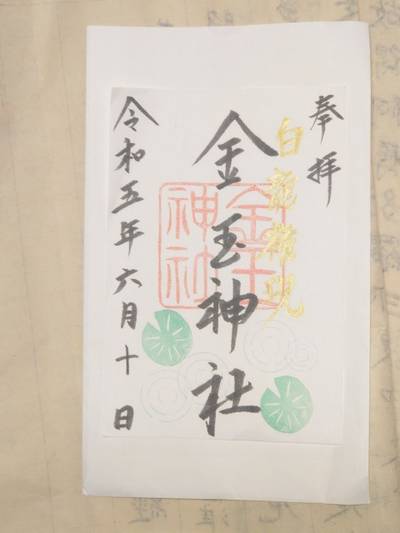 奉拝
白龍
金玉神社
金玉
神社
令和五年六月十日